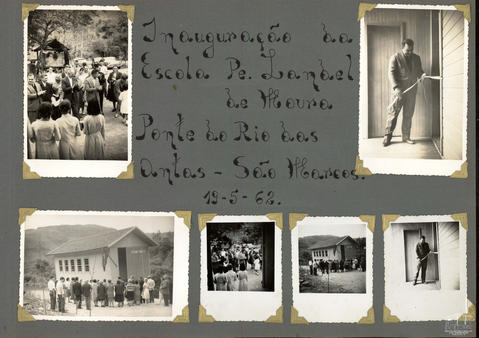 Inauguração da
Escola Pe. Landel
de Moura
Ponte do Rio das
Antas - São Marcos.
19-5-62.